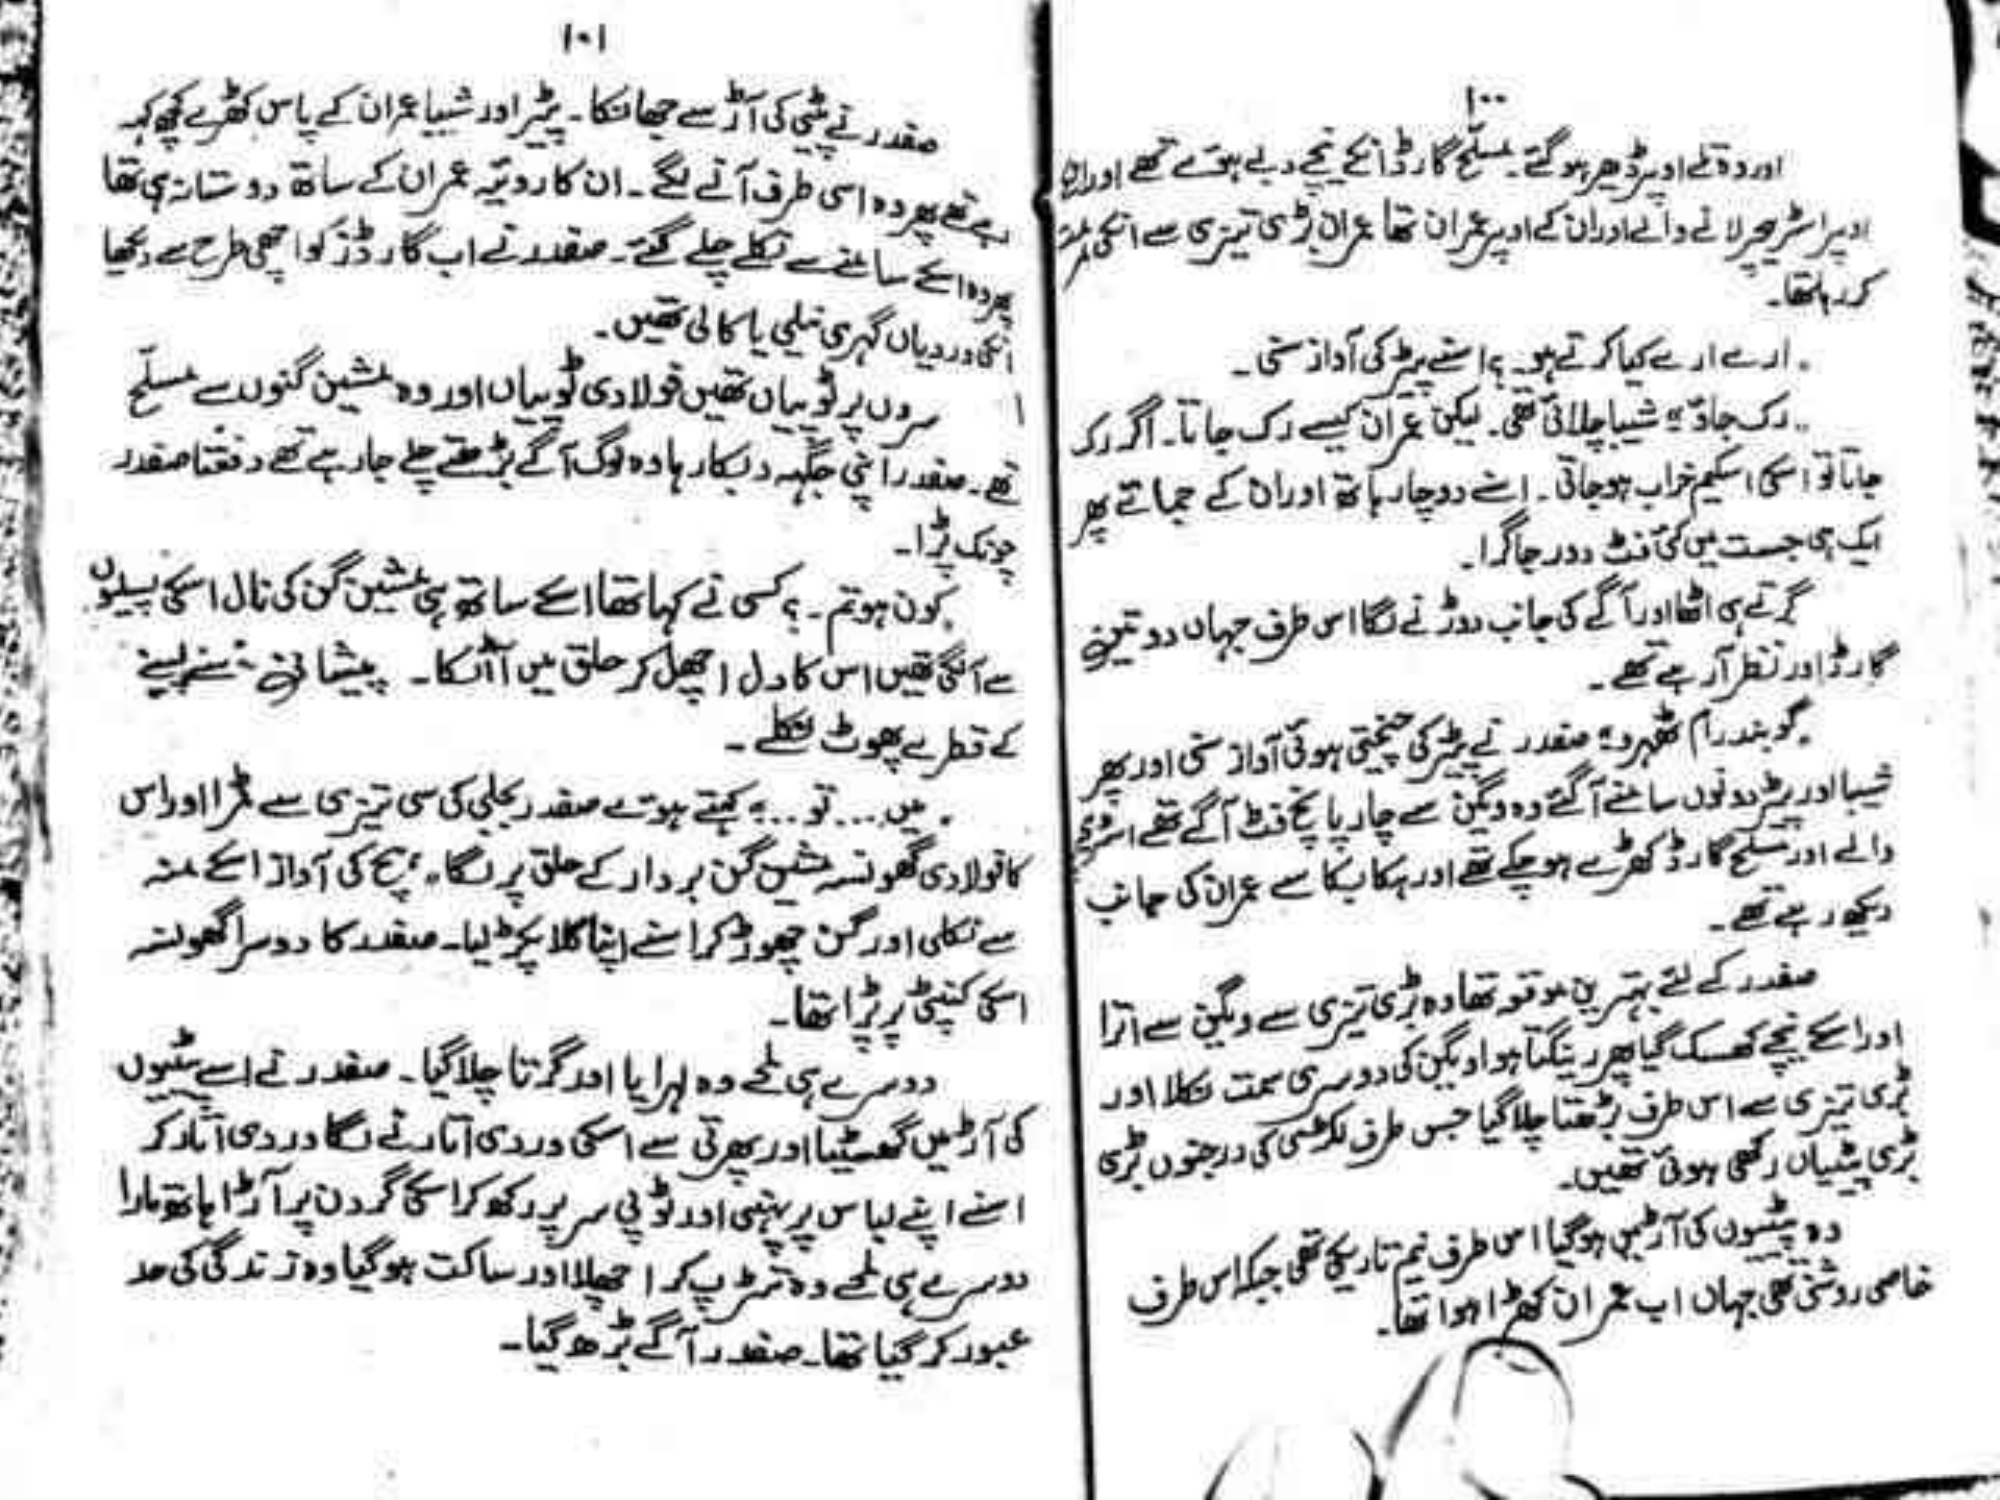 ۱۰۰
اور وہ تلے اوپر ڈھیر ہو گئے۔ مسلّح گارڈ انکے نیچے دبے ہوئے تھے اور ان
اوپر اسٹریچر لانے والے اور ان کے اوپر عمران تھا عمران بڑی تیزی سے انکی مرمت
کر رہا تھا۔
"ارے ارے کیا کرتے ہو۔؟ اسنے پیٹر کی آواز سنی۔
"رک جاؤ" شیبا چلائی تھی۔ لیکن عمران کیسے رک جاتا۔ اگر رک
جاتا تو اسکی اسکیم خراب ہو جاتی۔ اسنے دو چار ہاتھ اور ان کے جمائے پھر
ایک ہی جست میں کئی فٹ دور جا گرا۔
گرتے ہی اٹھا اور آگے کی جانب دوڑنے لگا اس طرف جہاں دو تین
گارڈ اور نظر آرہے تھے۔
"گوبند رام ٹھہرو" صفدر نے پیٹر کی چیختی ہوئی آواز سنی اور پھر
شیبا اور پیٹر دونوں سامنے آگئے وہ ویگن سے چار پانچ فٹ آگے تھے
والے اور مسلح گارڈ کھڑے ہو چکے تھے اور ہکا بکا سے عمران کی جانب
دیکھ رہے تھے۔
صفدر کے لئے بہترین موقعہ تھا وہ بڑی تیزی سے ویگن سے اترا
اور اسکے نیچے کھسک گیا پھر رینگتا ہوا ویگن کی دوسری سمت نکلا اور
بڑی تیزی سے اس طرف بڑھتا چلا گیا جس طرف لکڑی کی درجنوں بڑی
بڑی پیٹیاں رکھی ہوئی تھیں۔
وہ پیٹیوں کی آڑ میں ہو گیا اس طرف نیم تاریکی تھی جبکہ اس طرف
خاصی روشنی تھی جہاں اب عمران کھڑا ہوا تھا۔
۱۰۱
صفدر نے پیٹی کی آڑ سے جھانکا۔ پیٹر اور شیبا عمران کے پاس کھڑے کچھ کہہ
رہے تھے پھر وہ اسی طرف آنے لگے۔ ان کا رویّہ عمران کے ساتھ دوستانہ ہی تھا
پھر وہ اسکے سامنے سے نکلے چلے گئے۔ صفدر نے اب گارڈز کو اچھی طرح سے دیکھا
انکی وردیاں گہری نیلی یا کالی تھیں۔
سروں پر ٹوپیاں تھیں فولادی ٹوپیاں اور وہ مشین گنوں سے مسلّح
تھے۔ صفدر اپنی جگہہ دبکا رہا وہ لوگ آگے بڑھتے چلے جا رہے تھے دفعتاً صفدر
چونک پڑا۔
"کون ہو تم۔؟ کسی نے کہا تھا اسکے ساتھ ہی مشین گن کی نال اسکی پسلیوں
سے آلگی تھیں اس کا دل اچھل کر حلق میں آاٹکا۔ پیشانی پسینے
کے قطرے پھوٹ نکلے۔
"میں... تو..." کہتے ہوئے صفدر بجلی کی سی تیزی سے مڑا اور اس
کا فولادی گھونسہ مشین گن بردار کے حلق پر لگا۔ چ کی آواز اسکے منہ
سے نکلی اور گن چھوڑ کر اسنے اپنا گلا پکڑ لیا۔ صفدر کا دوسرا گھونسہ
اسکی کنپٹی پر پڑا تھا۔
دوسرے ہی لمحے وہ لہرایا اور گرتا چلا گیا۔ صفدر نے اسے پیٹیوں
کی آڑ میں گھسیٹا اور پھرتی سے اسکی وردی اتارنے لگا وردی اتار کر
اسنے اپنے لباس پر پہنی اور ٹوپی سر پر رکھ کر اسکی گردن پر آڑا ہاتھ مارا
دوسرے ہی لمحے وہ تڑپ کر اچھلا اور ساکت ہو گیا وہ زندگی کی حد
عبور کر گیا تھا۔ صفدر آگے بڑھ گیا۔